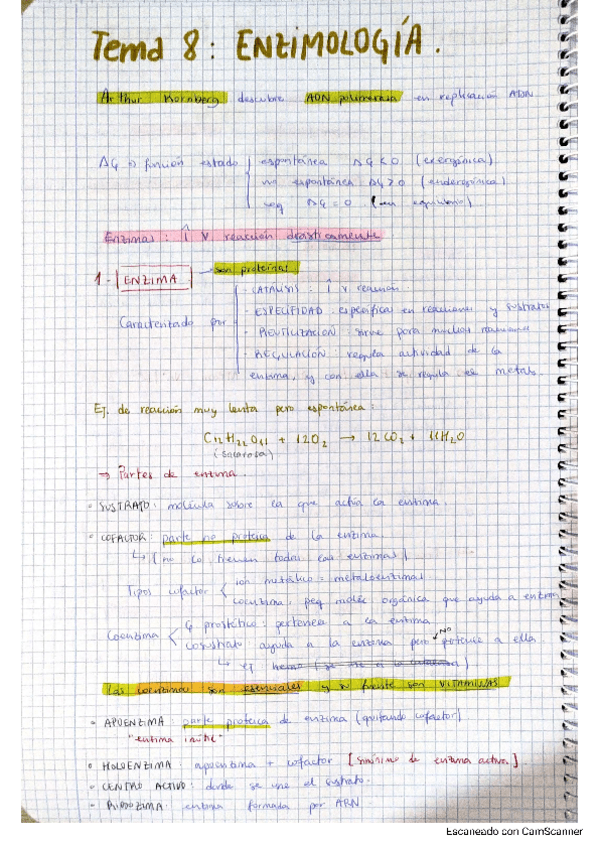 Tema 8: ENZIMOLOGÍA.
Arthur Kornberg descubre ADN polimerasa en replicación ADN
ΔG → función estado { espontánea ΔG<0 (exergónica)
no espontánea ΔG>0 (endergónica)
ΔG = 0 (en equilibrio).
Enzimas: ↑ V reacción drásticamente.
1- ENZIMA → son proteínas
Caracterizado por
· CATÁLISIS: ↑ v reacción.
· ESPECIFIDAD: específica en reacciones y sustratos
· REUTILIZACIÓN: sirve para muchas reacciones
· REGULACIÓN: regula actividad de la
enzima, y con ella se regula el metab.
Ej. de reacción muy lenta pero espontánea:
C12H22O11 + 12O2 → 12CO2 + 11H2O
(sacarosa)
→ Partes de enzima.
• SUSTRATO: molécula sobre la que actúa la enzima.
• COFACTOR: parte no proteica de la enzima.
↳ (no lo tienen todas las enzimas)
Tipos cofactor { ion metálico = metaloenzimas
coenzima: peq moléc orgánica que ayuda a enzima
Coenzima { G prostético: pertenece a la enzima
cosustrato ayuda a la enzima pero NO pertenece a ella.
↳ ej hemo
Las coenzimas son esenciales y su fuente son VITAMINAS
• APOENZIMA: parte proteica de enzima (quitando cofactor)
"enzima inútil"
• HOLOENZIMA: apoenzima + cofactor [sinónimo de enzima activa]
• CENTRO ACTIVO: donde se une el sustrato.
• RIBOZIMA: enzima formada por ARN
Escaneado con CamScanner